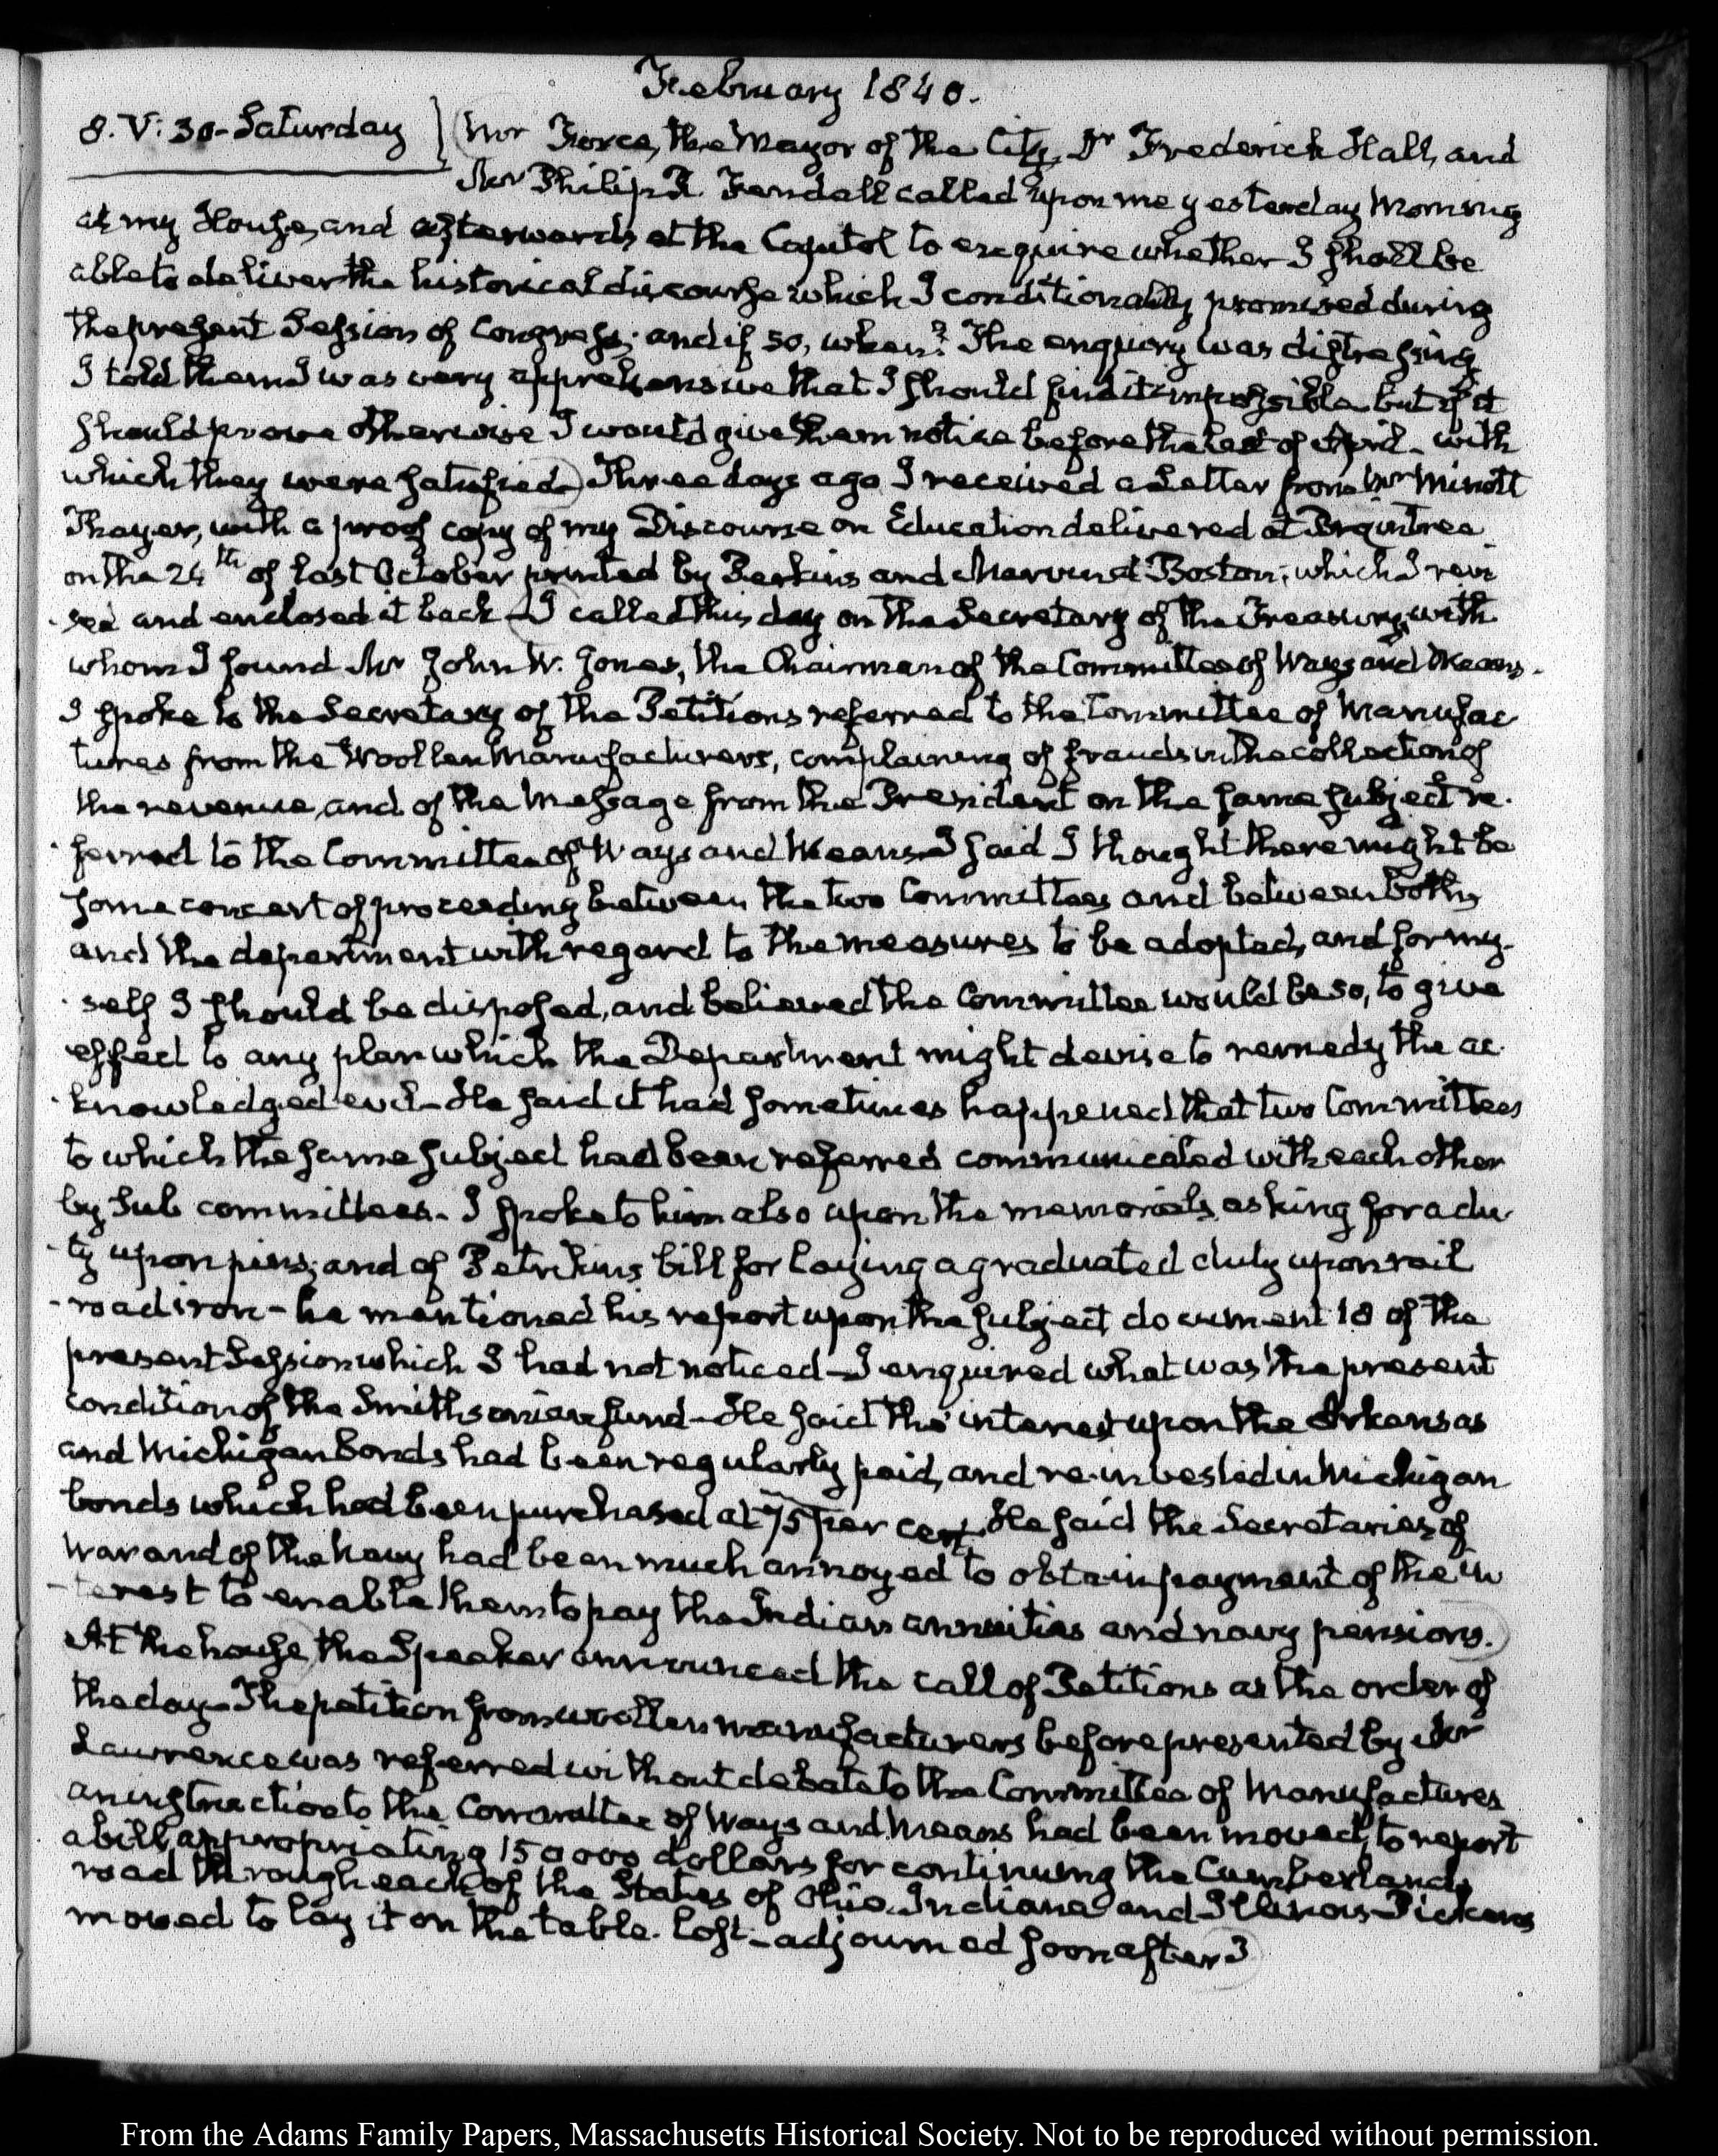 February 1840.
8. V: 30 - Saturday
Mr Force, the Mayor of the City, Dr Frederick Hall, and
Mr Philip R. Fendall called upon me yesterday Morning
at my House, and afterwards at the Capitol to enquire whether I shall be
able to deliver the historical discourse which I conditionally promised during
the present Session of Congress; and if so, when? The enquiry was distressing
I told them I was very apprehensive that I should find it impossible but if it
should prove otherwise I would give them notice before the last of April - with
which they were satisfied) Three days ago I received a Letter from Mr Minott
Thayer, with a proof copy of my Discourse on Education delivered at Braintree
on the 24th of last October printed by Perkins and Marvin at Boston; which I revi
-sed and enclosed it back - I called this day on the Secretary of the Treasury, with
whom I found Mr John W. Jones, the Chairman of the Committee of Ways and Means.
I spoke to the Secretary of the Petitions referred to the Committee of Manufac
tures from the Woollen Manufacturers, complaining of frauds in the collection of
the revenue, and of the Message from the President on the same subject re-
-ferred to the Committee of Ways and Means. I said I thought there might be
some concert of proceeding between the two Committees and between both,
and the department with regard to the measures to be adopted, and for my-
-self I should be disposed, and believed the Committee would be so, to give
effect to any plan which the Department might devise to remedy the ac-
-knowledged evil - He said it had sometimes happened that two Committees
to which the same subject had been referred communicated with each other
by Sub committees - I spoke to him also upon the memorials asking for a du-
-ty upon pins; and of Petrikins bill for laying a graduated duty upon rail
-road iron - he mentioned his report upon the subject document 18 of the
present Session which I had not noticed - I enquired what was the present
condition of the Smithsonian fund - He said the interest upon the Arkansas
and Michigan bonds had been regularly paid, and re-invested in Michigan
bonds which had been purchased at 75 per cent. He said the Secretaries of
War and of the Navy had been much annoyed to obtain payment of the in
-terest to enable them to pay the Indian annuities and navy pensions.)
At the house, the Speaker announced the call of Petitions as the order of
the day - The petition from woollen manufacturers before presented by Mr
Lawrence was referred without debate to the Committee of Manufactures
an instruction to the Committee of Ways and Means had been moved, to report
a bill appropriating 150 000 dollars for continuing the Cumberland
road through each of the States of Ohio, Indiana and Illinois - Pickens
moved to lay it on the table. lost - adjourned soon after 3
From the Adams Family Papers, Massachusetts Historical Society. Not to be reproduced without permission.